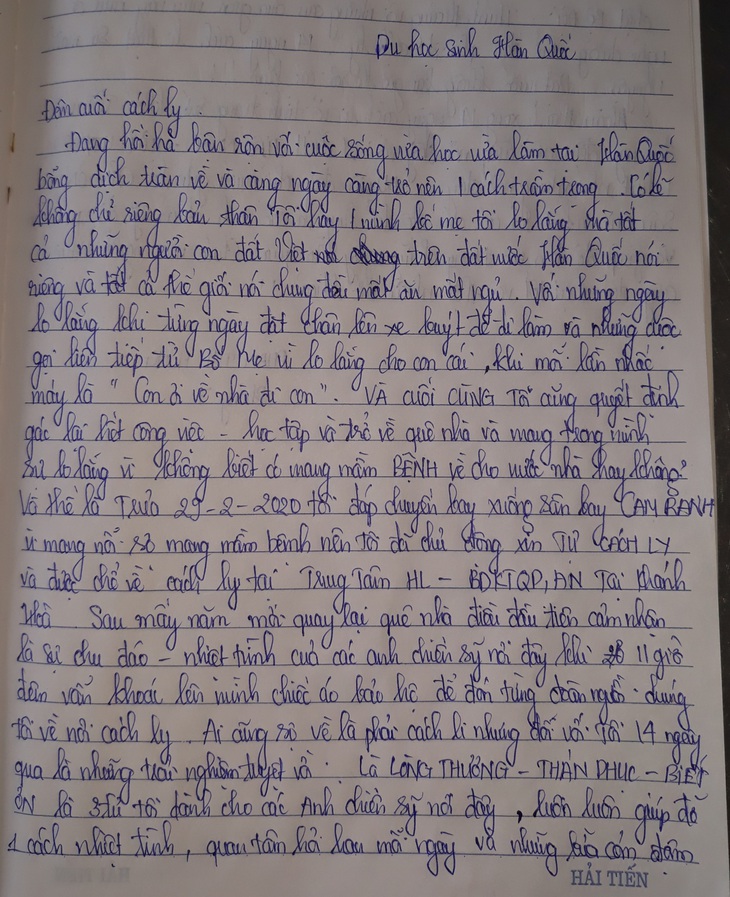 Du học sinh Hàn Quốc
Đêm cuối cách ly.
Đang hối hả bân rôn với cuộc sống vừa học vừa làm tại Hàn Quốc
bỗng dịch tràn về và càng ngày càng trở nên 1 cách trầm trọng. Có lẽ
không chỉ riêng bản thân Tôi hay 1 mình bố mẹ tôi lo lắng mà tất
cả những người con đất Việt trên đất nước Hàn Quốc nói
riêng và tất cả thế giới nói chung đều mất ăn mất ngủ. Với những ngày
lo lắng khi từng ngày đặt chân lên xe buýt để đi làm và những cuộc
gọi liên tiếp từ Bố Mẹ vì lo lắng cho con cái, khi mỗi lần nhấc
máy là " Con ơi về nhà đi con". VÀ CUỐI CÙNG Tôi cũng quyết định
gác lại hết công việc - học tập và trở về quê nhà và mang trong mình
sự lo lắng vì không biết có mang mầm BỆNH về cho nước nhà hay không?
Và thế là Trưa 29-2-2020 tôi đáp chuyến bay xuống sân bay CAM RANH
vì mang nỗi sợ mang mầm bệnh nên tôi đã chủ động xin TỰ CÁCH LY
và được chở về cách ly tại Trung Tâm HL - BDKTQP, AN Tại Khánh
Hoà. Sau mấy năm mới quay lại quê nhà điều đầu tiên cảm nhận
là sự chu đáo - nhiệt tình của các anh chiến sỹ nơi đây khi 11 giờ
đêm vẫn khoác lên mình chiếc áo bảo hộ để đón từng đoàn người chúng
tôi về nơi cách ly. Ai cũng sợ về là phải cách li nhưng đối với Tôi 14 ngày
qua là những trải nghiệm tuyệt vời. Là LÒNG THƯƠNG - THÁN PHỤC - BIẾT
ƠN là thứ tôi dành cho các Anh chiến sỹ nơi đây, luôn luôn giúp đỡ
1 cách nhiệt tình, quan tâm hỏi han mỗi ngày và những bữa cơm đảm
HẢI TIẾN